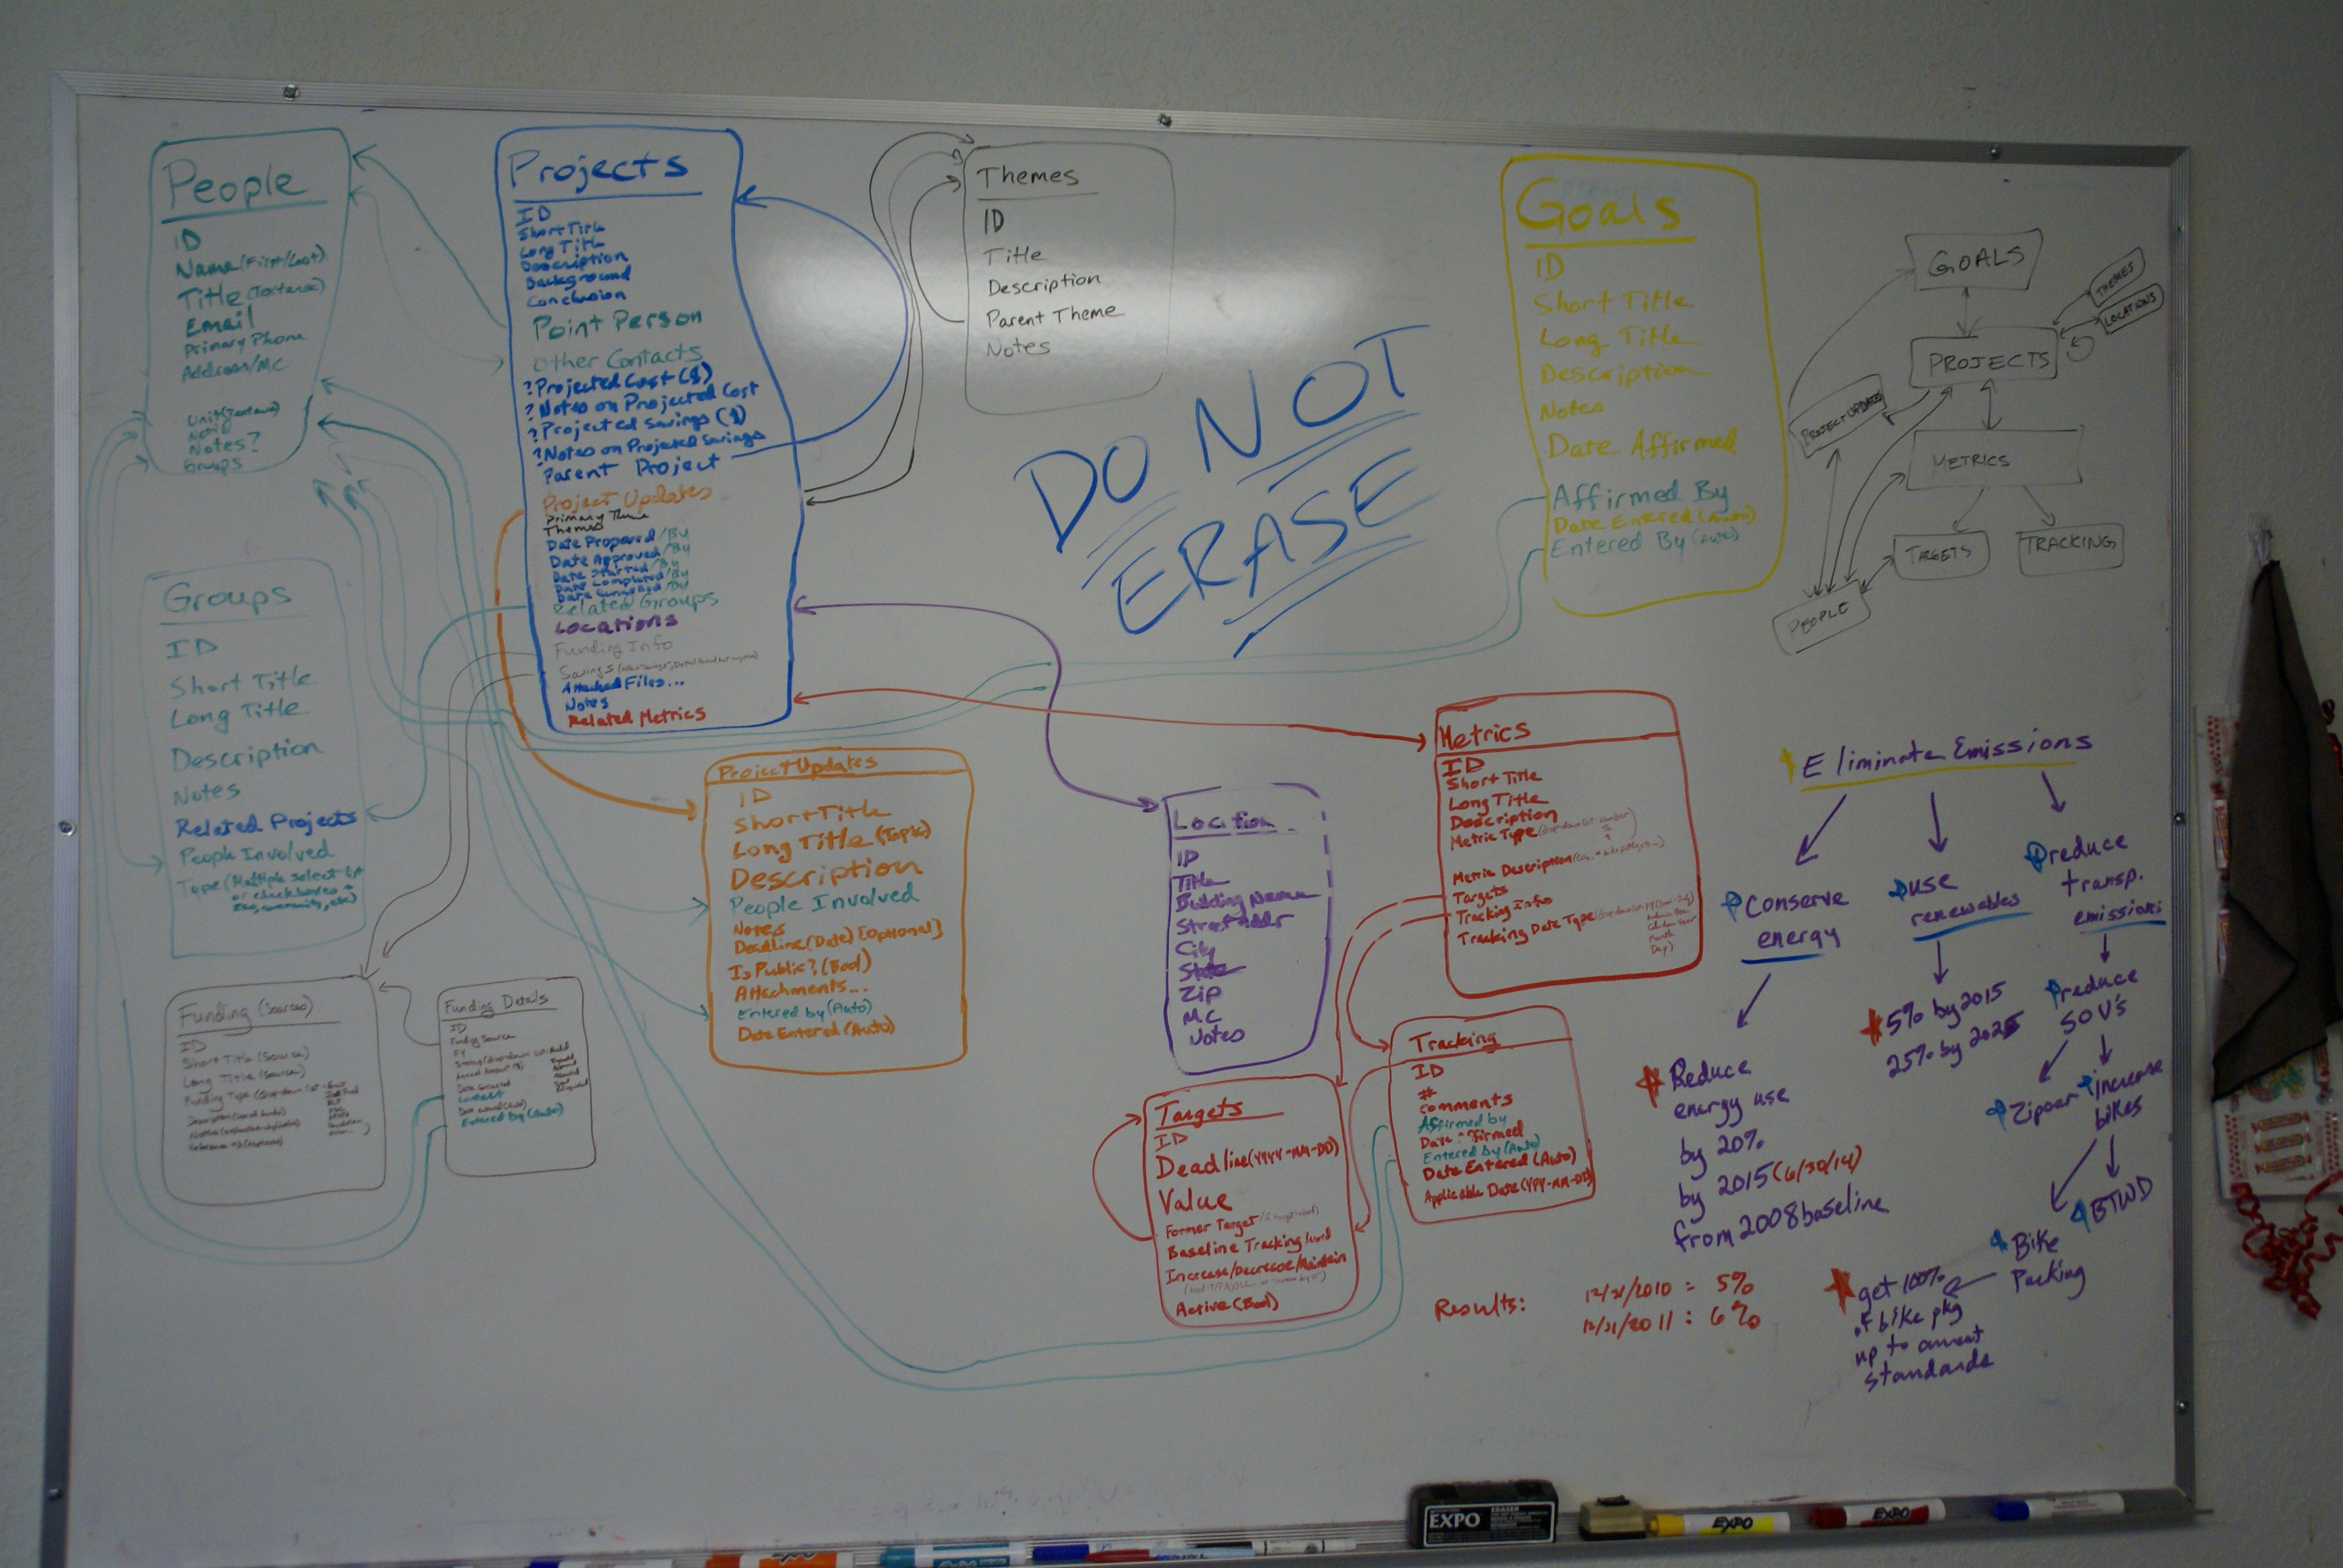 People
ID
Name (First/Last)
Title (Textarea)
Email
Primary Phone
Address/MC
Unit (Textarea)
Notes?
Groups
Projects
ID
Short Title
Long Title
Description
Background
Conclusion
Point Person
Other Contacts
? Projected Cost ($)
? Notes on Projected Cost
? Projected Savings ($)
? Notes on Projected Savings
Parent Project
Project Updates
Primary Theme
Themes
Date Proposed/By
Date Approved/By
Date Started/By
Date Completed/By
Date Cancelled/By
Related Groups
Locations
Funding Info
Savings
Attached Files...
Notes
Related Metrics
Themes
ID
Title
Description
Parent Theme
Notes
DO NOT
ERASE
Goals
ID
Short Title
Long Title
Description
Notes
Date Affirmed
Affirmed By
Date Entered (Auto)
Entered By (Auto)
GOALS
THEMES
LOCATIONS
PROJECTS
PROJECT UPDATES
METRICS
TARGETS
TRACKING
PEOPLE
Groups
ID
Short Title
Long Title
Description
Notes
Related Projects
People Involved
Type (Multiple select
or checkboxes
Funding (Sources)
ID
Short Title (Source)
Long Title (Source)
Funding Type (dropdown list
Funding Details
ID
Funding Source
FY
Contact
Entered by (Auto)
Project Updates
ID
Short Title
Long Title (Topic)
Description
People Involved
Notes
Deadline (Date) [Optional]
Is Public? (Bool)
Attachments...
Entered by (Auto)
Date Entered (Auto)
Location
ID
Title
Building Name
Street Addr
City
State
Zip
MC
Notes
Metrics
ID
Short Title
Long Title
Description
Metric Type (dropdown list: number
%
Metric Description
Targets
Tracking Info
Tracking Date Type
Month
Day)
Tracking
ID
#
comments
Affirmed by
Date Affirmed
Entered by (Auto)
Date Entered (Auto)
Applicable Date (YYYY-MM-DD)
Targets
ID
Deadline (YYYY-MM-DD)
Value
Former Target
Baseline Tracking
Increase/Decrease/Maintain
Active (Bool)
Eliminate Emissions
Conserve
energy
use
renewables
reduce
transp.
emissions
Reduce
energy use
by 20%
by 2015 (6/30/14)
from 2008 baseline
5% by 2015
25% by 2025
reduce
SOV's
Zipcar
increase
bikes
BTWD
Bike
Parking
get 100%
of bike pkg
up to current
standards
Results:
12/31/2010 = 5%
12/31/2011 : 6%
EXPO
ERASER
EXPO
EXPO
EXPO